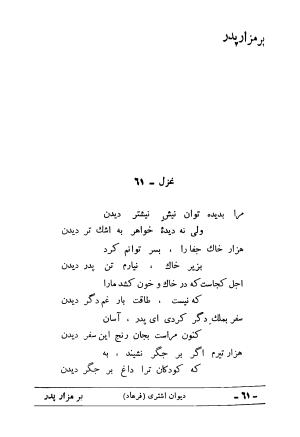 بر مزار پدر
غزل - ۶۱
مرا بدیده توان نیش نیشتر دیدن
ولی نه دیدهٔ خواهر به اشك تر دیدن
هزار خاك جفا را ، بسر توانم کرد
بزیر خاك ، نیارم تن پدر دیدن
اجل کجاست که در خاك و خون کشد مارا
که نیست ، طاقت بار غم دگر دیدن
سفر بملك دگر کردی ای پدر ، آسان
کنون مراست بجان رنج این سفر دیدن
هزار تیرم اگر بر جگر نشیند ، به
که کودکان ترا داغ بر جگر دیدن
بر مزار پدر
دیوان اشتری (فرهاد)
- ۶۱ -